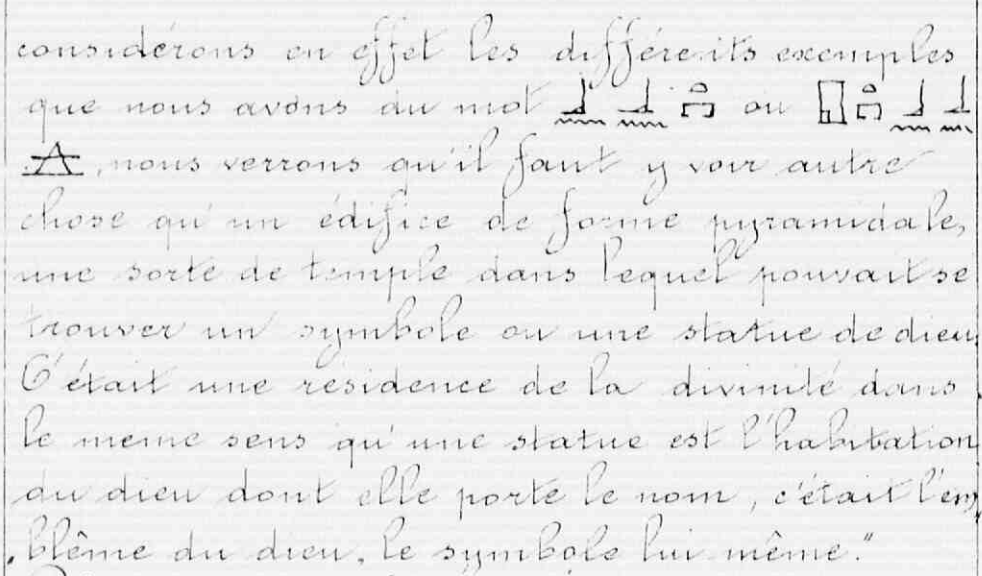 considérons en effet les différents exemples
que nous avons du mot 𓃀𓈖𓃀𓈖𓏏𓉐 ou 𓉗𓏏𓉐𓃀𓈖𓃀𓈖
, nous verrons qu'il faut y voir autre
chose qu'un édifice de forme pyramidale,
une sorte de temple dans lequel pouvait se
trouver un symbole ou une statue de dieu.
C'était une résidence de la divinité dans
le meme sens qu'une statue est l'habitation
du dieu dont elle porte le nom, c'était l'em
blême du dieu, le symbole lui-même."